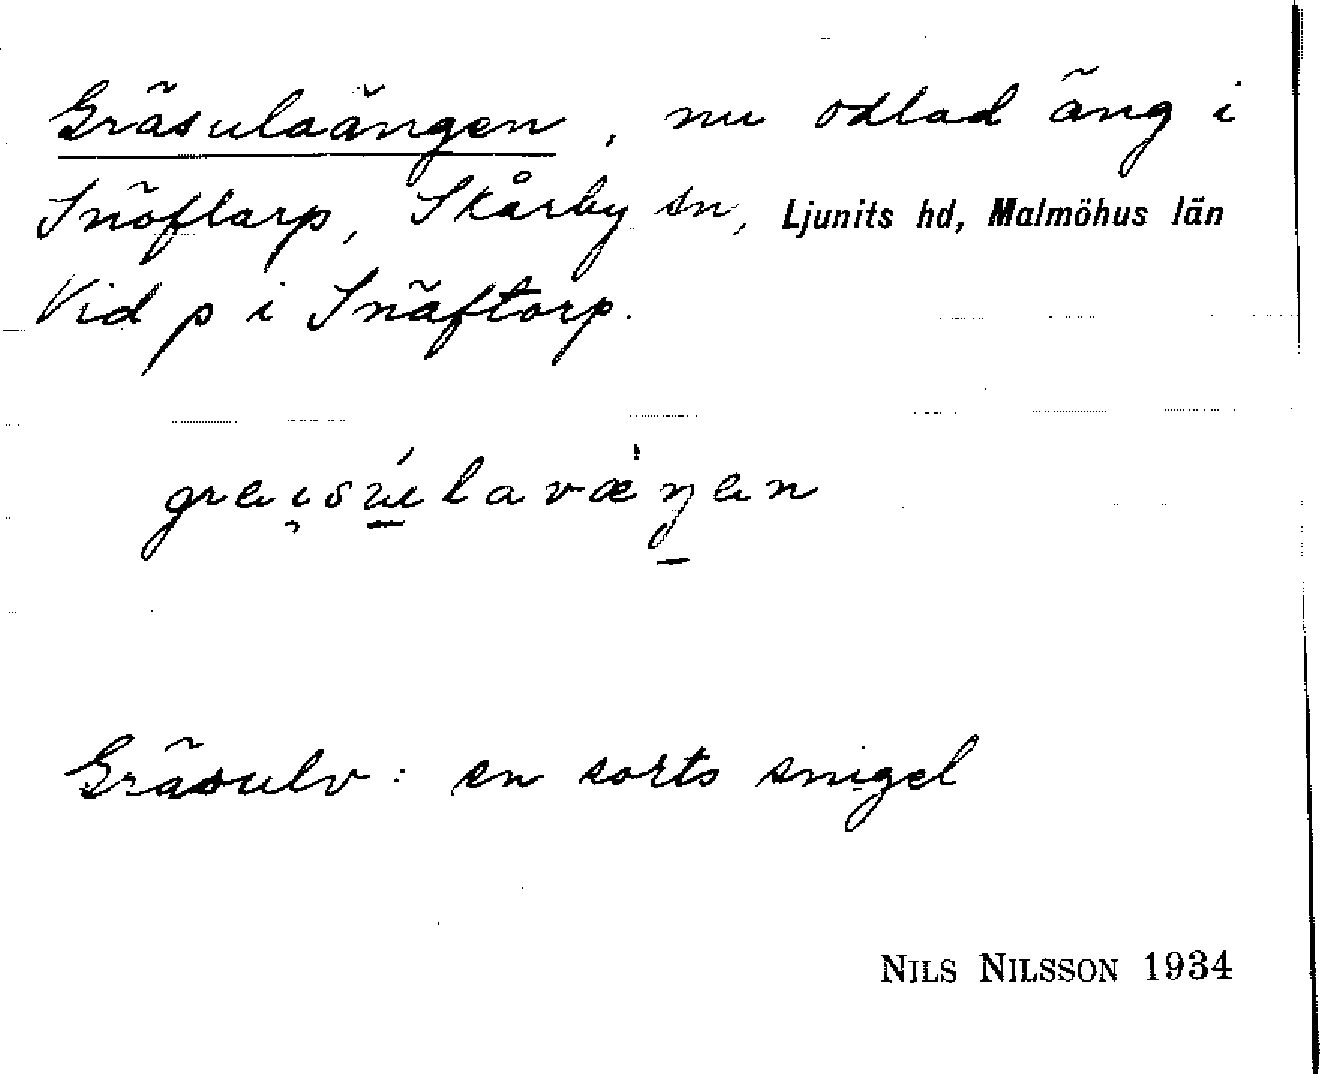 Gräsulaängen, nu odlad äng i
Snöflarp, Skårby sn, Ljunits hd, Malmöhus län
Vid p i Snäftorp.
Gräsulv: en sorts snigel
NILS NILSSON 1934